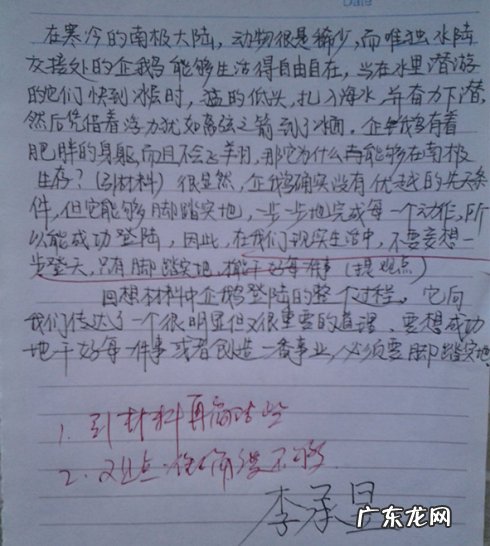 Date
在寒冷的南极大陆，动物很是稀少，而唯独水陆
交接处的企鹅能够生活得自由自在，当在水里潜游
的它们快到冰层时，猛的低头，扎入海水，并奋力下潜，
然后凭借着浮力犹如离弦之箭 冰面。企鹅有着
肥胖的身躯，而且不会飞翔，那它为什么 能够在南极
生存？（引材料）很显然，企鹅确实没有优越的先天条
件，但它能够脚踏实地，一步一步地完成每一个动作，所
以能成功登陆，因此，在我们现实生活中，不要妄想一
步登天，只有脚踏实地， 干好每件事（提观点）
回想材料中企鹅登陆的整个过程，它向
我们传达了一个很明显但又很重要的道理，要想成功
地干好每一件事或者创造一番事业，必须要脚踏实地
1、引材料再简洁些
2、 点 不够
李承昱
广东龙网